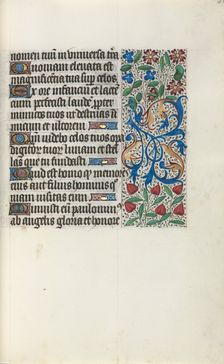 nomen tuum in universa terra
Quoniam elevata est
magnificentia tua super celos
Ex ore infancium et lacten
cium perfecisti laudem propter
inimicos tuos ut destruas ini
micum et ultorem
Quoniam videbo celos tuos opera
digitorum tuorum lunam et stel
las que tu fundasti
Quid est homo quod memor es
eius aut filius hominis quoniam
visitas eum
Minuisti eum paulominus
ab angelis gloria et honore